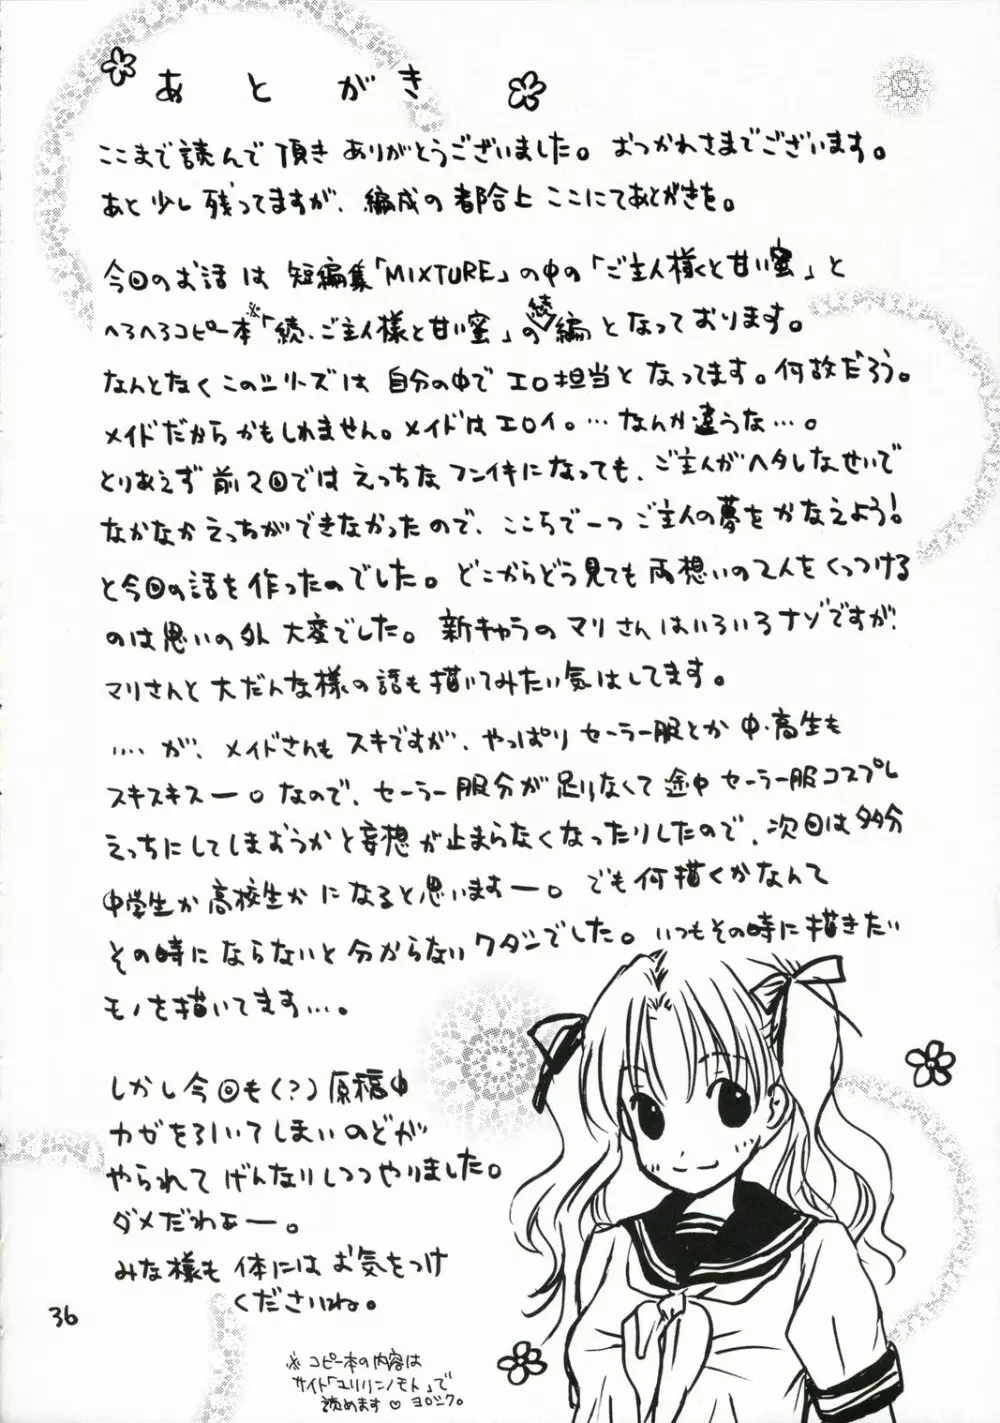 あとがき
ここまで読んで頂きありがとうございました。おつかれさまでございます。
あと少し残ってますが、編成の都合上ここにてあとがきを。
今回のお話は短編集「MIXTURE」の中の「ご主人様と甘い蜜」と
へろへろコピー本※「続・ご主人様と甘い蜜」の続編となっております。
なんとなくこのシリーズは自分の中でエロ担当となってます。何故だろう。
メイドだからかもしれません。メイドはエロイ。…なんか違うな…。
とりあえず前2回ではえっちなフンイキになっても、ご主人がヘタレなせいで
なかなかえっちができなかったので、ここらで一つご主人の夢をかなえよう!
と今回の話を作ったのでした。どこからどう見ても両想いの2人をくっつける
のは思いの外大変でした。新キャラのマリさんはいろいろナゾですが、
マリさんと大だんな様の話も描いてみたい気はしてます。
‥‥が、メイドさんもスキですが、やっぱりセーラー服とか中・高生も
スキスキスー。なので、セーラー服分が足りなくて途中セーラー服コスプレ
えっちにしてしまおうかと妄想が止まらなくなったりしたので、次回は多分
中学生か高校生かになると思いますー。でも何描くかなんて
その時にならないと分からないワタシでした。いつもその時に描きたい
モノを描いてます…。
しかし今回も(?)原稿中
カゼを引いてしまいのどが
やられてげんなりしつつやりました。
ダメだわぁー。
みな様も体にはお気をつけ
くださいね。
※コピー本の内容は
サイト「ユリリンノモト」で
読めます♡ヨロシク。
36